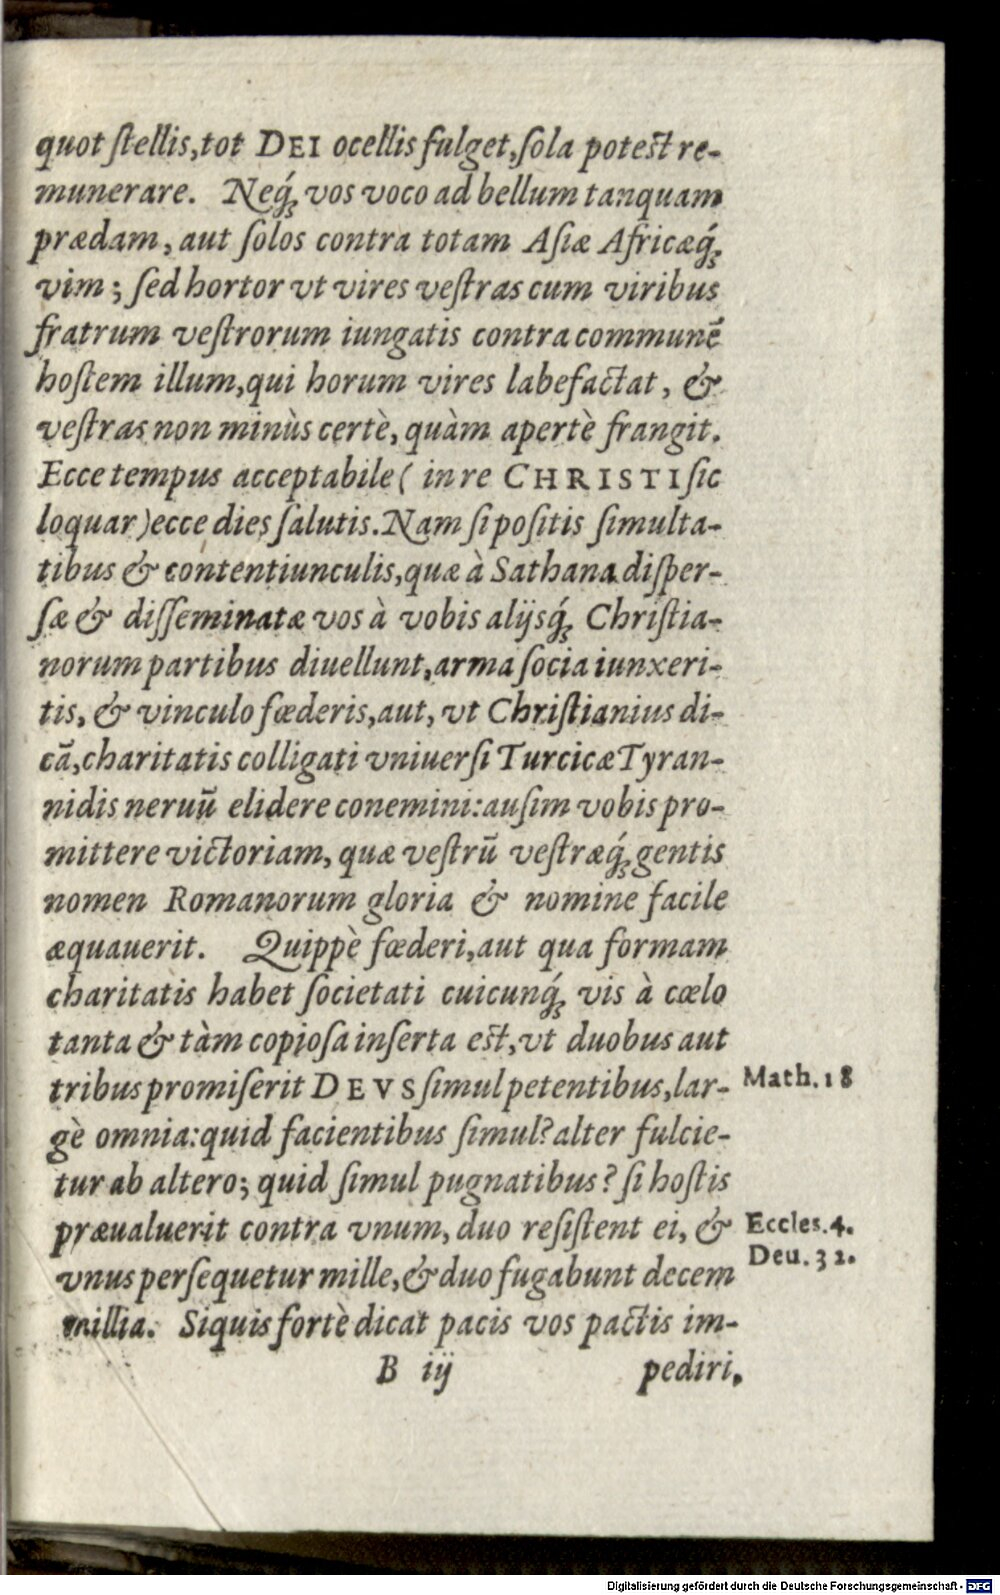 quot ſtellis, tot DEI ocellis fulget, ſola poteſt re-
munerare. Neq́ꝫ vos voco ad bellum tanquam
prædam, aut ſolos contra totam Aſiæ Africæq́ꝫ
vim; ſed hortor vt vires veſtras cum viribus
fratrum veſtrorum iungatis contra communē
hoſtem illum, qui horum vires labefactat, &
veſtras non minùs certè, quàm apertè frangit.
Ecce tempus acceptabile ( in re CHRISTI ſic
loquar ) ecce dies ſalutis. Nam ſi poſitis ſimulta-
tibus & contentiunculis, quæ à Sathana diſper-
ſæ & diſſeminatæ vos à vobis alijsq́ꝫ Chriſtia-
norum partibus diuellunt, arma ſocia iunxeri-
tis, & vinculo fœderis, aut, vt Chriſtianius di-
cā, charitatis colligati vniuerſi Turcicæ Tyran-
nidis neruū elidere conemini: auſim vobis pro-
mittere victoriam, quæ veſtrū veſtræq́ꝫ gentis
nomen Romanorum gloria & nomine facile
æquauerit. Quippè fœderi, aut qua formam
charitatis habet ſocietati cuicunq́ꝫ vis à cœlo
tanta & tàm copioſa inſerta eſt, vt duobus aut
tribus promiſerit DEVS ſimul petentibus, lar-
Math. 18
gè omnia: quid facientibus ſimul? alter fulcie-
tur ab altero; quid ſimul pugnatibus? ſi hoſtis
præualuerit contra vnum, duo reſiſtent ei, &
Eccles. 4.
Deu. 32.
vnus perſequetur mille, & duo fugabunt decem
millia. Siquis fortè dicat pacis vos pactis im-
B iij
pediri,
Digitalisierung gefördert durch die Deutsche Forschungsgemeinschaft - DFG